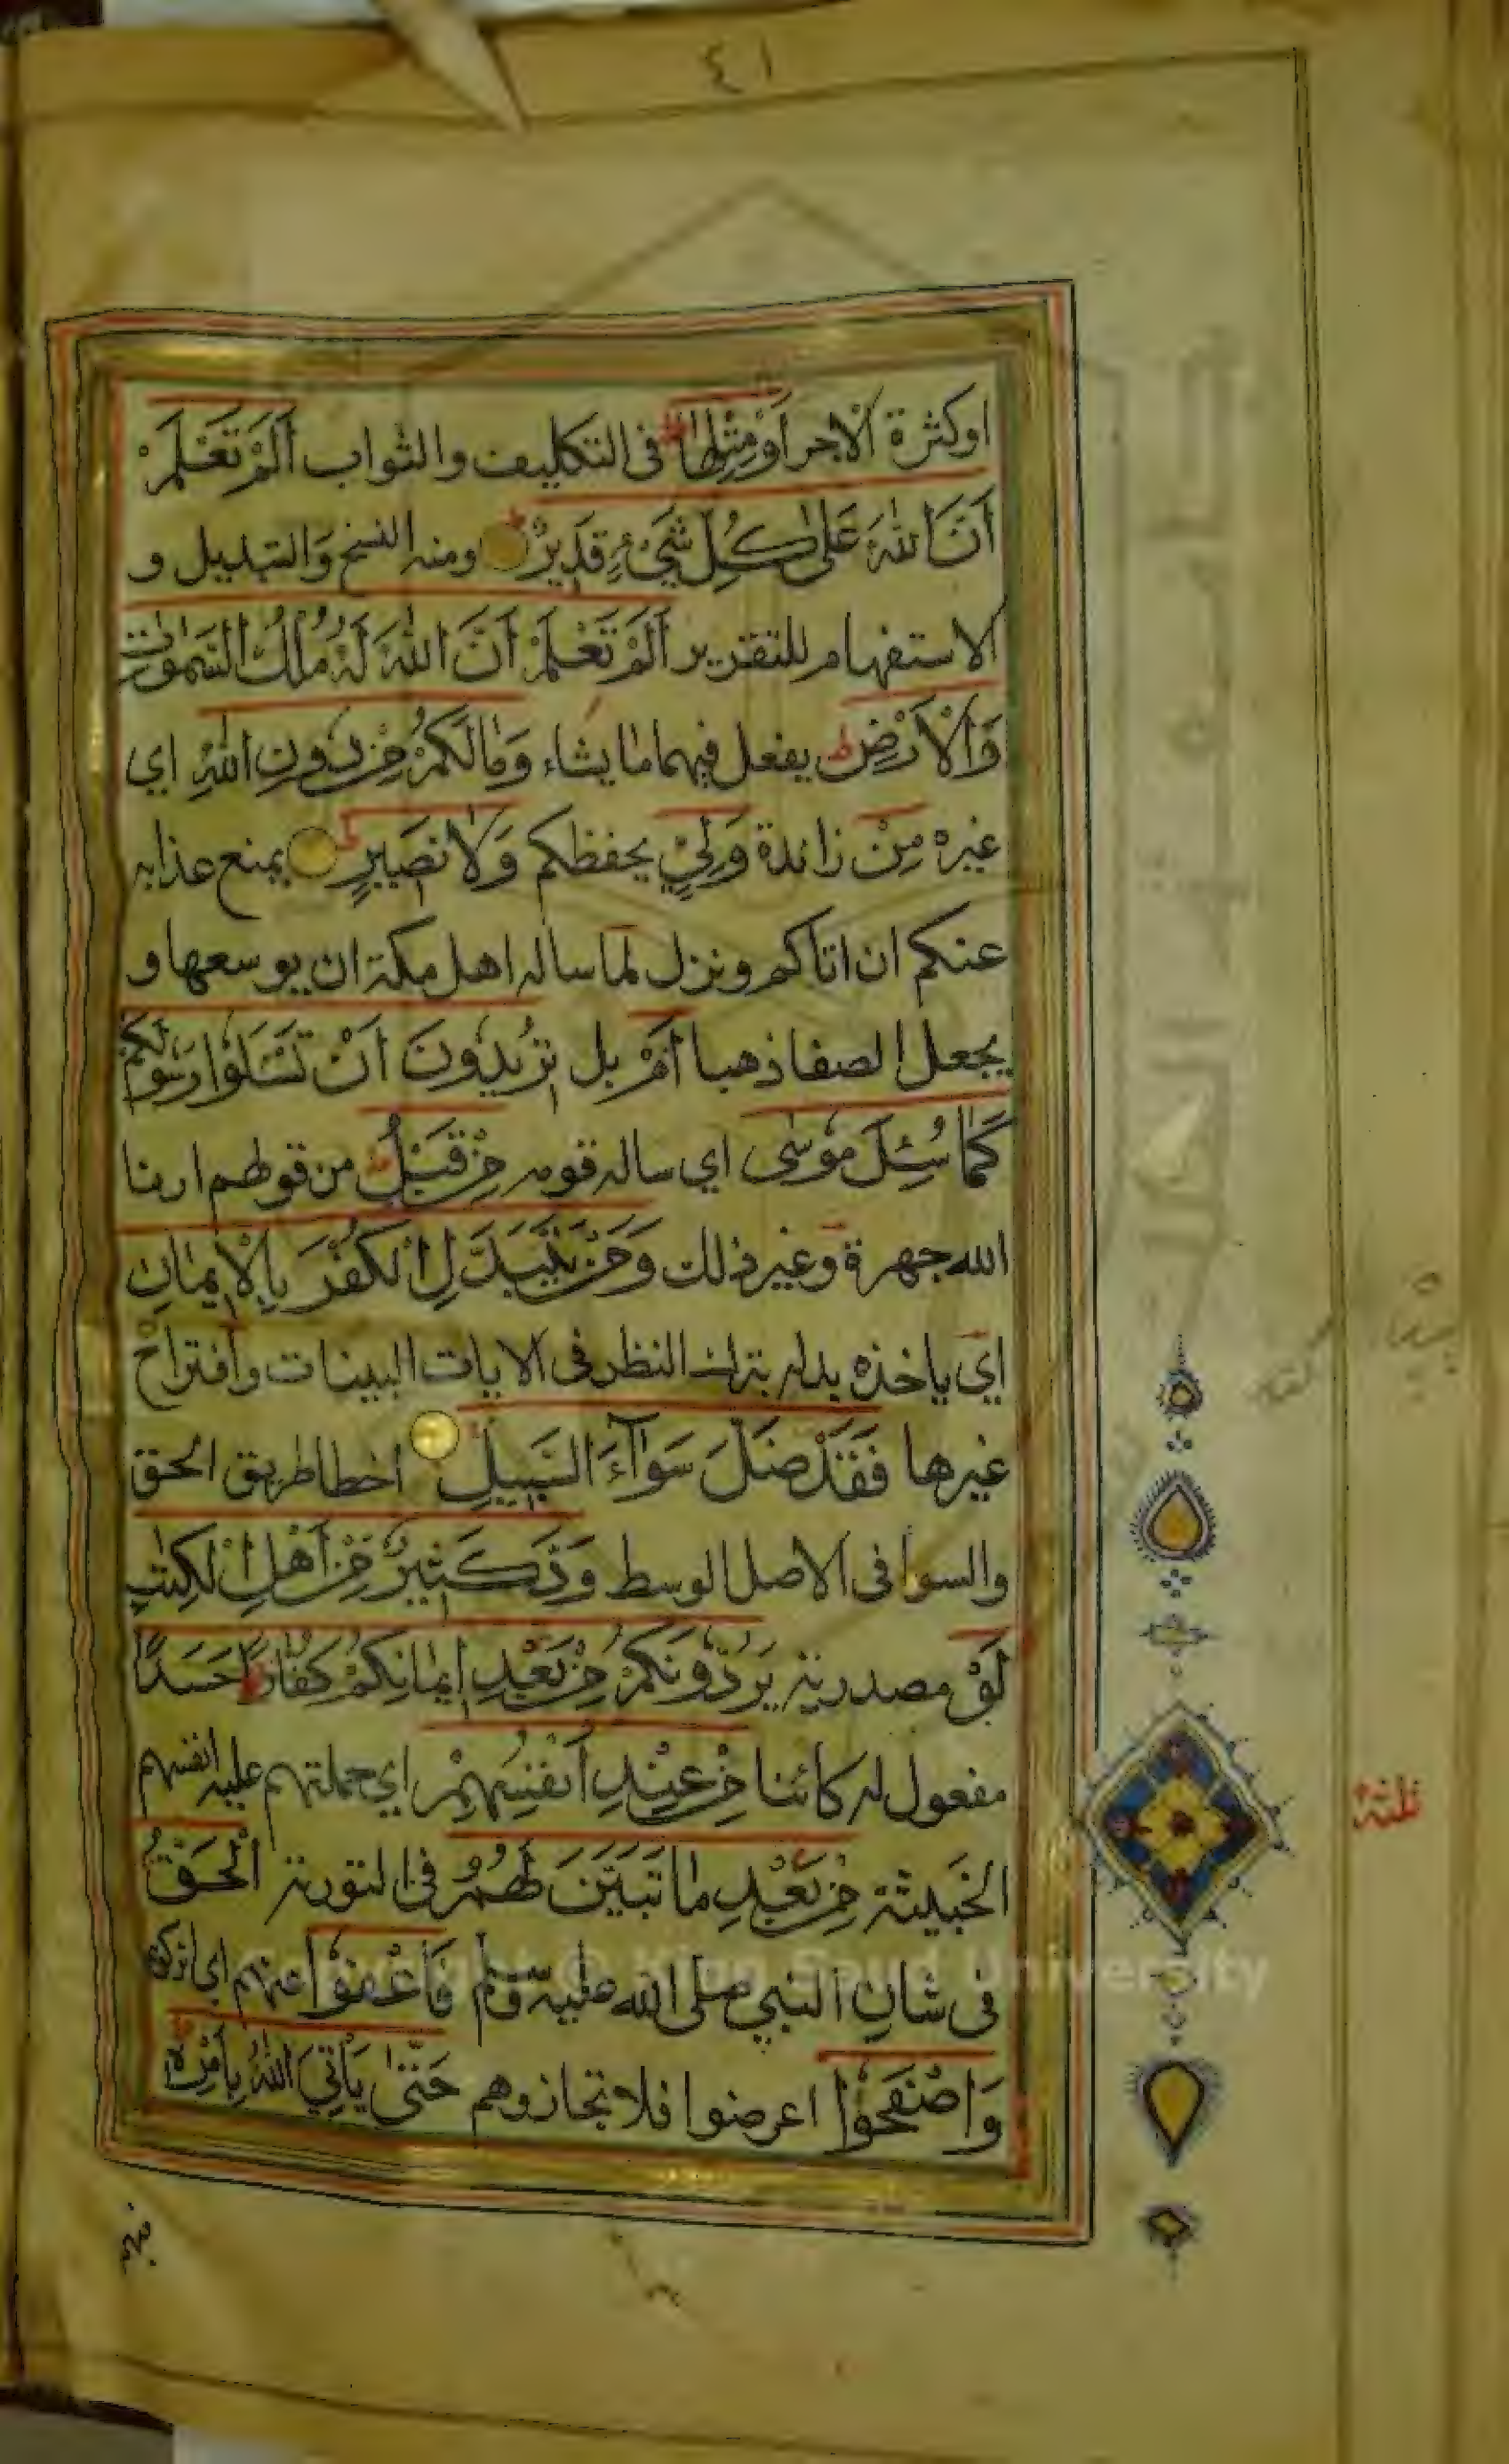 ٤١
اوكثرة الاجر أَوْ مِثْلِهَا ط فى التكليف والثواب أَلَمْ تَعْلَمْ
أَنَّ اللهَ عَلَىٰ كُلِّ شَيْءٍ قَدِيرٌ ط ومنه النسخ وَالتبديل و
الاستفهام للتقرير أَلَمْ تَعْلَمْ أَنَّ اللهَ لَهُ مُلْكُ السَّمٰوٰتِ
وَالْأَرْضِ ط يفعل فيهما ما يشاء وَمَا لَكُمْ مِنْ دُونِ اللهِ اي
غيره مِنْ زائدة وَلِيٍّ يحفظكم وَلَا نَصِيرٍ يمنع عذابه
عنكم ان اتاكم ونزل لما ساله اهل مكة ان يوسعها و
يجعل الصفا ذهبا أَمْ بل تُرِيدُونَ أَنْ تَسْـَٔلُوا رَسُولَكُمْ
كَمَا سُئِلَ مُوسَىٰ اي ساله قومه مِنْ قَبْلُ ط من قولهم ارنا
الله جهرة وغير ذلك وَمَنْ يَتَبَدَّلِ الْكُفْرَ بِالْإِيمَانِ
اي ياخذه بدله بترك النظر فى الايات البينات واقتراح
غيرها فَقَدْ ضَلَّ سَوَاءَ السَّبِيلِ اخطا طريق الحق
والسوا فى الاصل الوسط وَدَّ كَثِيرٌ مِنْ أَهْلِ الْكِتٰبِ
لَوْ مصدرية يَرُدُّونَكُمْ مِنْ بَعْدِ إِيمَانِكُمْ كُفَّارًا حَسَدًا
مفعول له كائنا مِنْ عِنْدِ أَنْفُسِهِمْ اي حملتهم عليه انفسهم
الخَبيثة مِنْ بَعْدِ مَا تَبَيَّنَ لَهُمُ فى التورية الْحَقُّ
فى شان النبي صلى الله عليه وسلم فَاعْفُوا عنهم اي اتركوهم
وَاصْفَحُوا اعرضوا فلا تجازوهم حَتَّىٰ يَأْتِيَ اللهُ بِأَمْرِهِ ط
فيهم
ثلثة
King Saud University